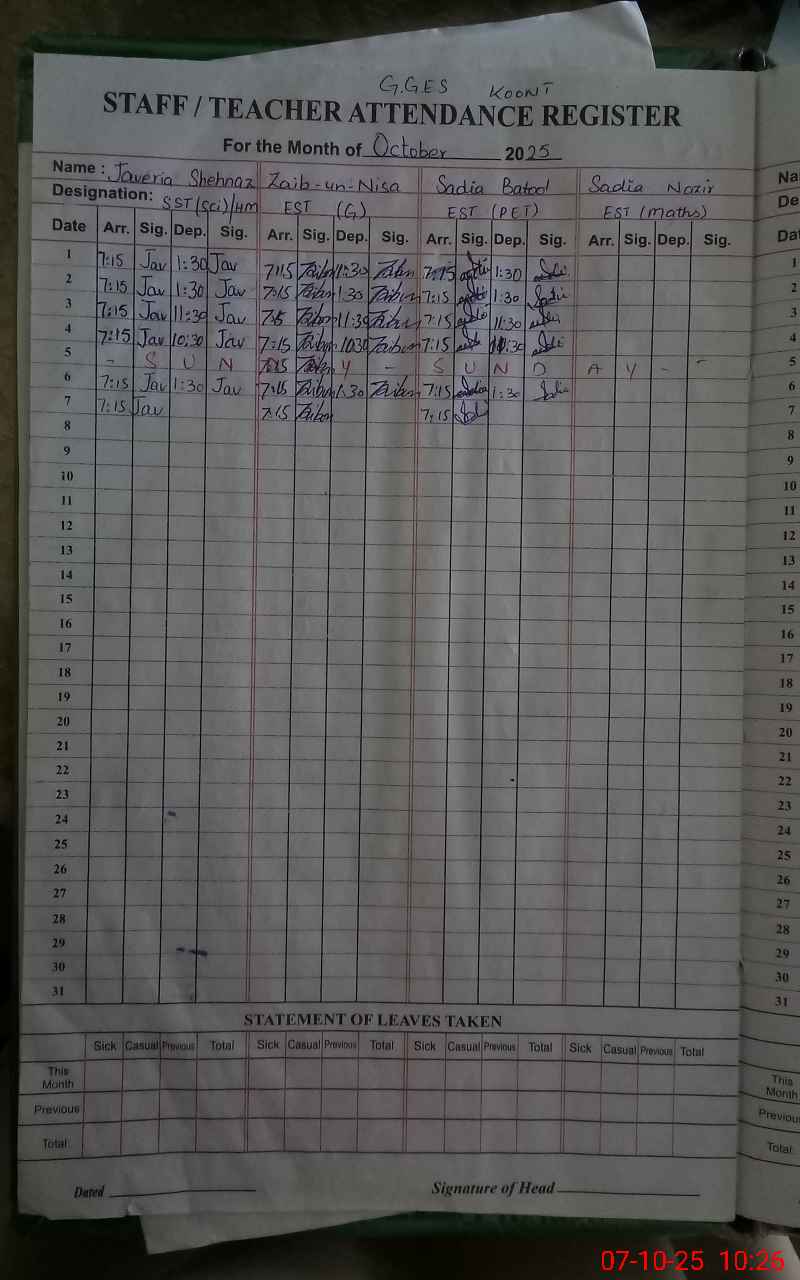 G.GES KOONT
STAFF / TEACHER ATTENDANCE REGISTER
For the Month of October 2025
Name : Javeria Shehnaz Zaib-un-Nisa Sadia Batool Sadia Nazir Na
Designation: SST(Sci)/HM EST (G) EST (PET) EST (Maths) De
Date Arr. Sig. Dep. Sig. Arr. Sig. Dep. Sig. Arr. Sig. Dep. Sig. Arr. Sig. Dep. Sig. Dat
1 7:15 Jav 1:30 Jav 7:15 1:30 7:15 1:30 1
2 7:15 Jav 1:30 Jav 7:15 1:30 7:15 1:30 2
3 7:15 Jav 11:30 Jav 7:15 11:30 7:15 11:30 3
4 7:15 Jav 10:30 Jav 7:15 10:30 7:15 10:30 4
5 - S U N Y - S U N D A Y - - 5
6 7:15 Jav 1:30 Jav 7:15 1:30 7:15 1:30 6
7 7:15 Jav 7:15 7:15 7
8 8
9 9
10 10
11 11
12 12
13 13
14 14
15 15
16 16
17 17
18 18
19 19
20 20
21 21
22 22
23 23
24 24
25 25
26 26
27 27
28 28
29 29
30 30
31 31
STATEMENT OF LEAVES TAKEN
Sick Casual Previous Total Sick Casual Previous Total Sick Casual Previous Total Sick Casual Previous Total
This Month This Month
Previous Previous
Total Total
Dated Signature of Head
07-10-25 10:26